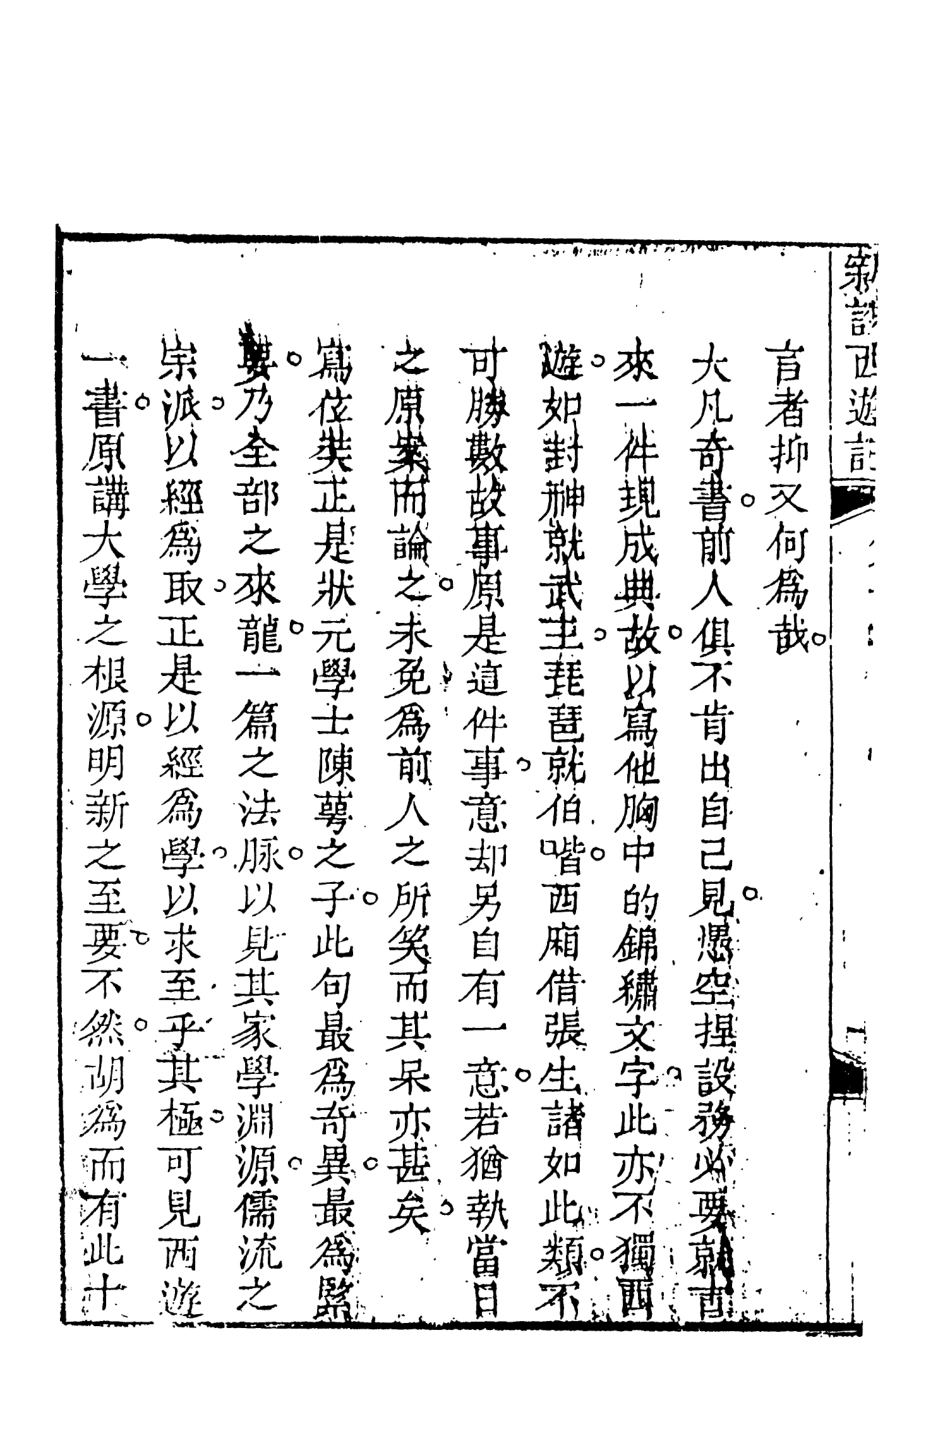 新說西遊記
言者抑又何爲哉。
大凡奇書。前人俱不肯出自己見。憑空捏設務必要就古
來一件現成典故。以寫他胸中的錦繡文字。此亦不獨西
遊。如封神就武王。琵琶就伯喈。西廂借張生諸如此類。不
可勝數故事原是這件事。意却另自有一意。若猶執當日
之原案而論之。未免爲前人之所笑而其呆亦甚矣。
寫位裝正是狀元學士陳萼之子。此句最爲奇異。最爲緊
要。乃全部之來龍。一篇之法脉。以見其家學淵源。儒流之
宗派。以經爲取。正是以經爲學。以求至乎其極。可見西遊
一書。原講大學之根源。明新之至要。不然。胡爲而有此十